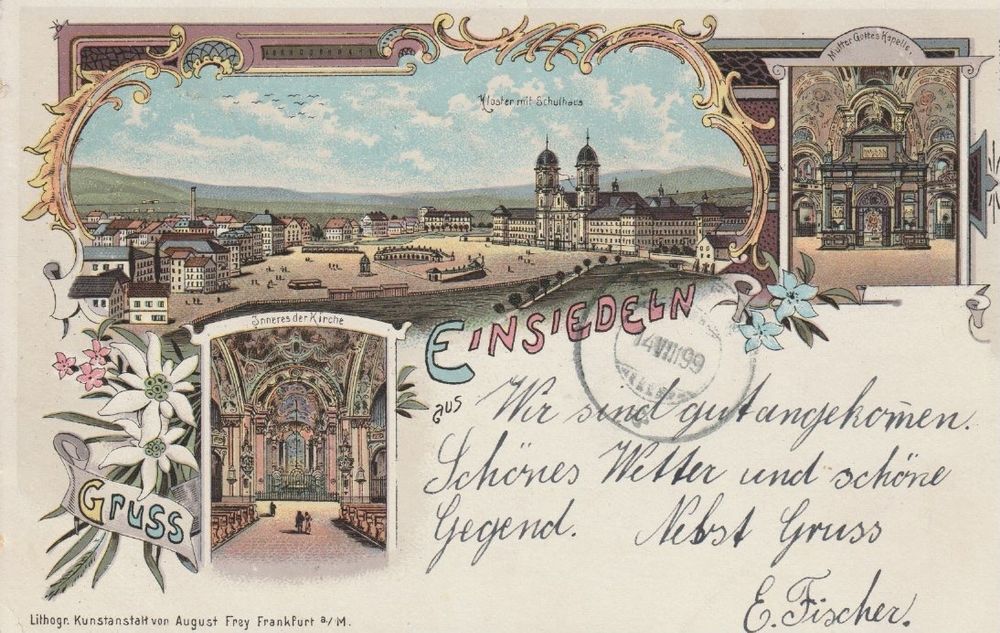 Kloster mit Schulhaus
Mutter Gottes Kapelle.
Inneres der Kirche
GRUSS
aus
EINSIEDELN
14 VIII 99
Wir sind gut angekom̅en.
Schönes Wetter und schöne
Gegend. Nebst Gruss
E. Fischer.
Lithogr. Kunstanstalt von August Frey Frankfurt a/M.